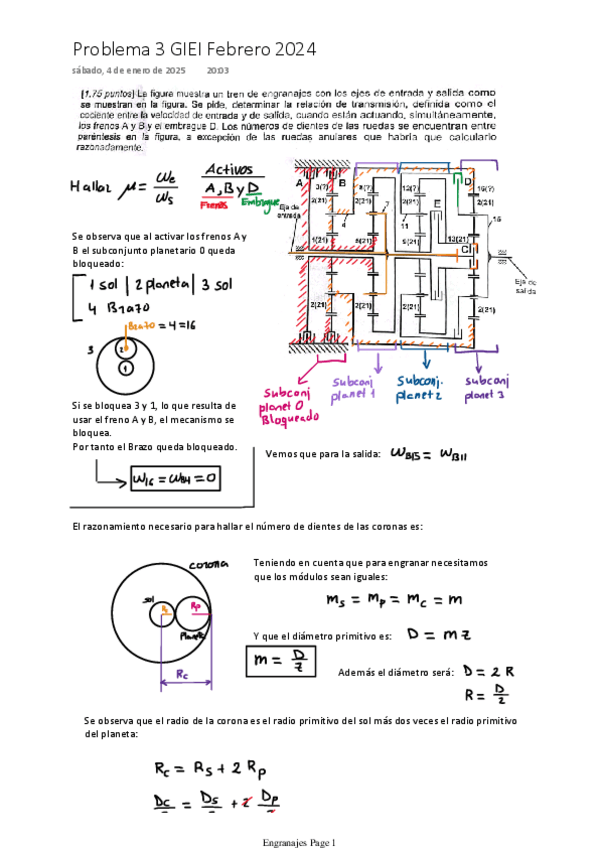 Problema 3 GIEI Febrero 2024
sábado, 4 de enero de 2025 20:03
[1.75 puntos] La figura muestra un tren de engranajes con los ejes de entrada y salida como
se muestran en la figura. Se pide, determinar la relación de transmisión, definida como el
cociente entre la velocidad de entrada y de salida, cuando están actuando, simultáneamente,
los frenos A y B y el embrague D. Los números de dientes de las ruedas se encuentran entre
paréntesis en la figura, a excepción de las ruedas anulares que habría que calcularlo
razonadamente.
Hallar μ = ωe / ωs
Activos
A, B y D
Frenos Embrague
A 3(?) B 8(?) 12(?) D 16(?)
2(21) 2(21) 2(21) 2(21)
Eje de
entrada
4 7 11 E 15
1(21) 13(21)
C
Eje de
salida
2(21) 2(21) 2(21) 2(21)
Se observa que al activar los frenos A y
B el subconjunto planetario 0 queda
bloqueado:
1 sol | 2 planeta | 3 sol
4 Brazo
Brazo = 4 = 16
3 2 1
Subconj
planet 0
Bloqueado
Subconj
planet 1
Subconj.
planet 2
subconj
planet 3
Si se bloquea 3 y 1, lo que resulta de
usar el freno A y B, el mecanismo se
bloquea.
Por tanto el Brazo queda bloqueado.
ω16 = ωB4 = 0
Vemos que para la salida: ωB15 = ωB11
El razonamiento necesario para hallar el número de dientes de las coronas es:
corona
sol
Rs Rp
Planeta
Rc
Teniendo en cuenta que para engranar necesitamos
que los módulos sean iguales:
ms = mp = mc = m
Y que el diámetro primitivo es: D = m z
m = D / z
Además el diámetro será: D = 2 R
R = D / 2
Se observa que el radio de la corona es el radio primitivo del sol más dos veces el radio primitivo
del planeta:
Rc = Rs + 2 Rp
Dc / 2 = Ds / 2 + 2 Dp / 2
Engranajes Page 1